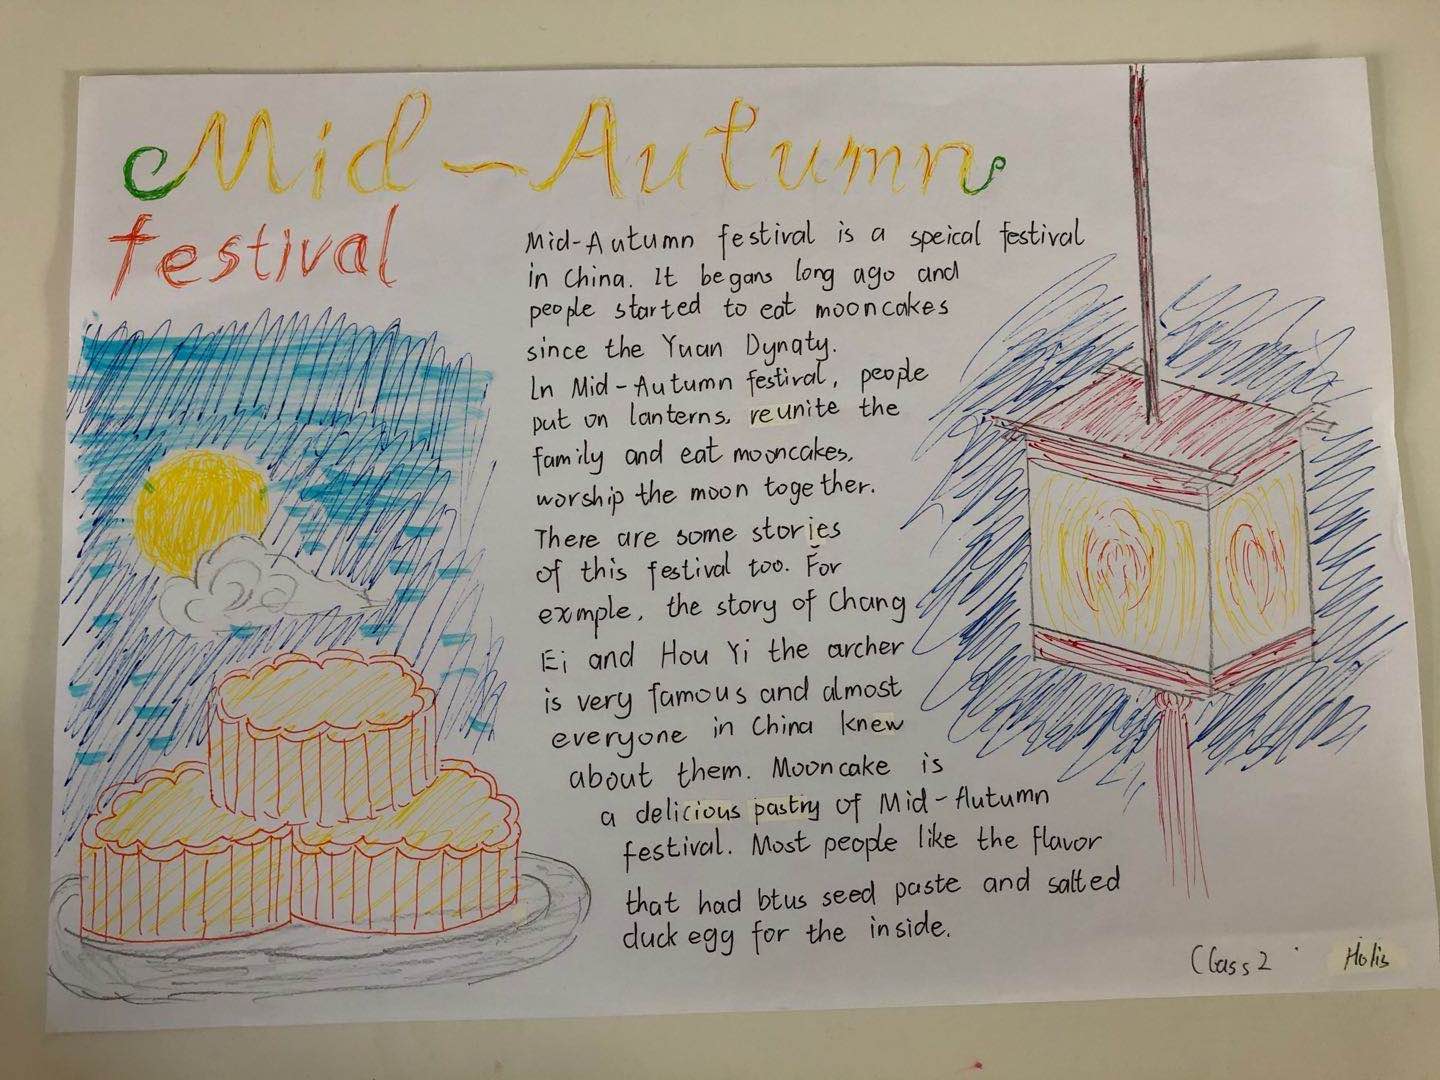 Mid-Autumn
festival
Mid-Autumn festival is a speical festival
in China. It begans long ago and
people started to eat mooncakes
since the Yuan Dynaty.
In Mid-Autumn festival, people
put on lanterns, reunite the
family and eat mooncakes,
worship the moon together.
There are some stories
of this festival too. For
exmple, the story of Chang
Ei and Hou Yi the archer
is very famous and almost
everyone in China knew
about them. Mooncake is
a delicious pastry of Mid-Autumn
festival. Most people like the flavor
that had btus seed paste and salted
duck egg for the inside.
Class 2 Holis